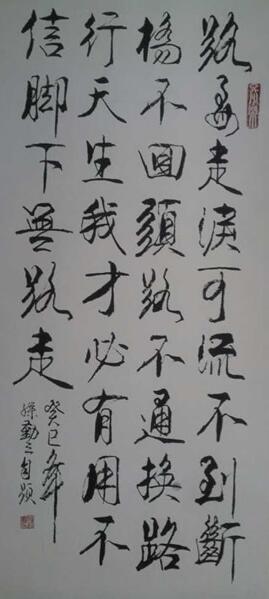 路要走淚可流不到斷
橋不回頭路不通換路
行天生我才必有用不
信脚下無路走
癸巳年